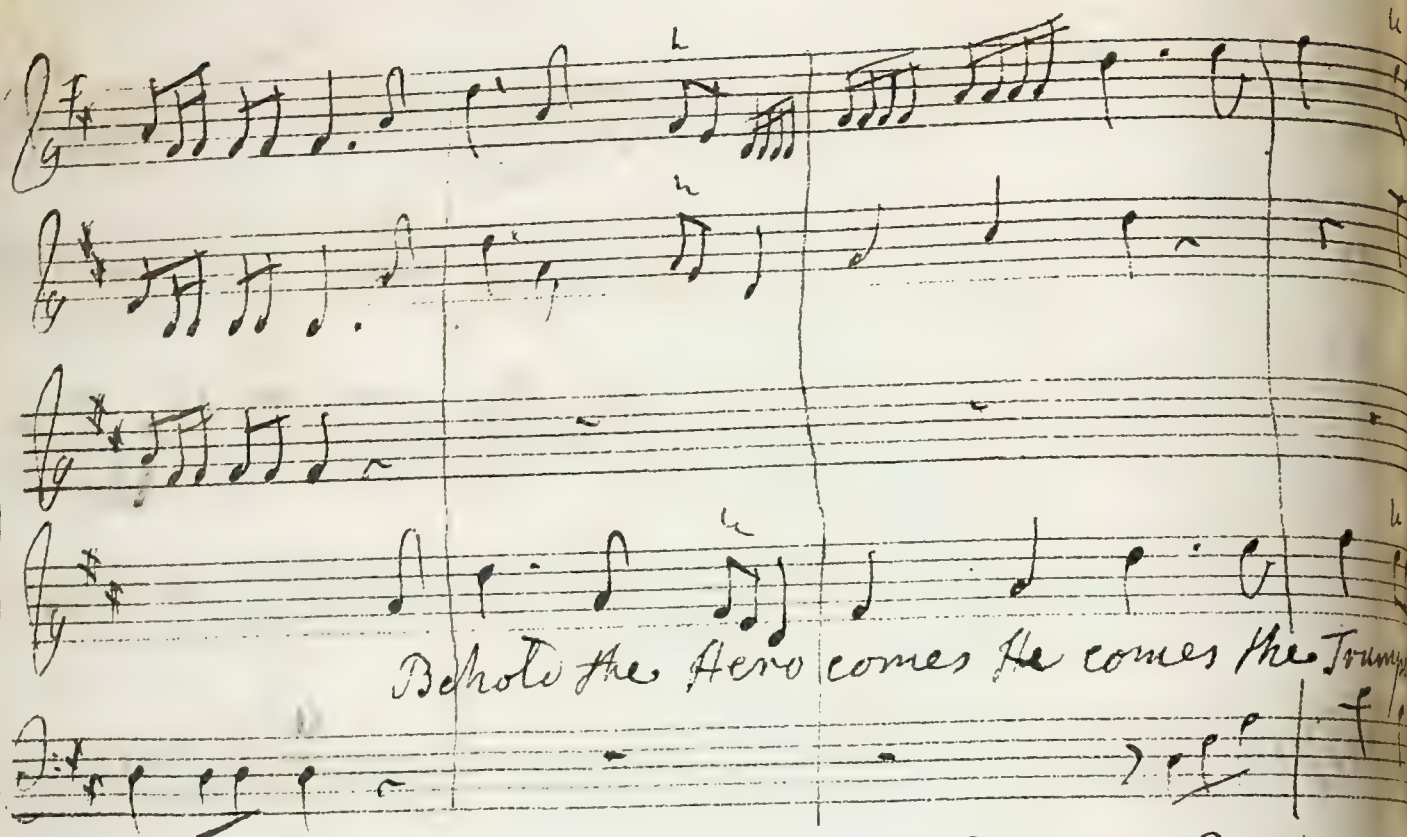 Behold the Hero comes He comes the Trump